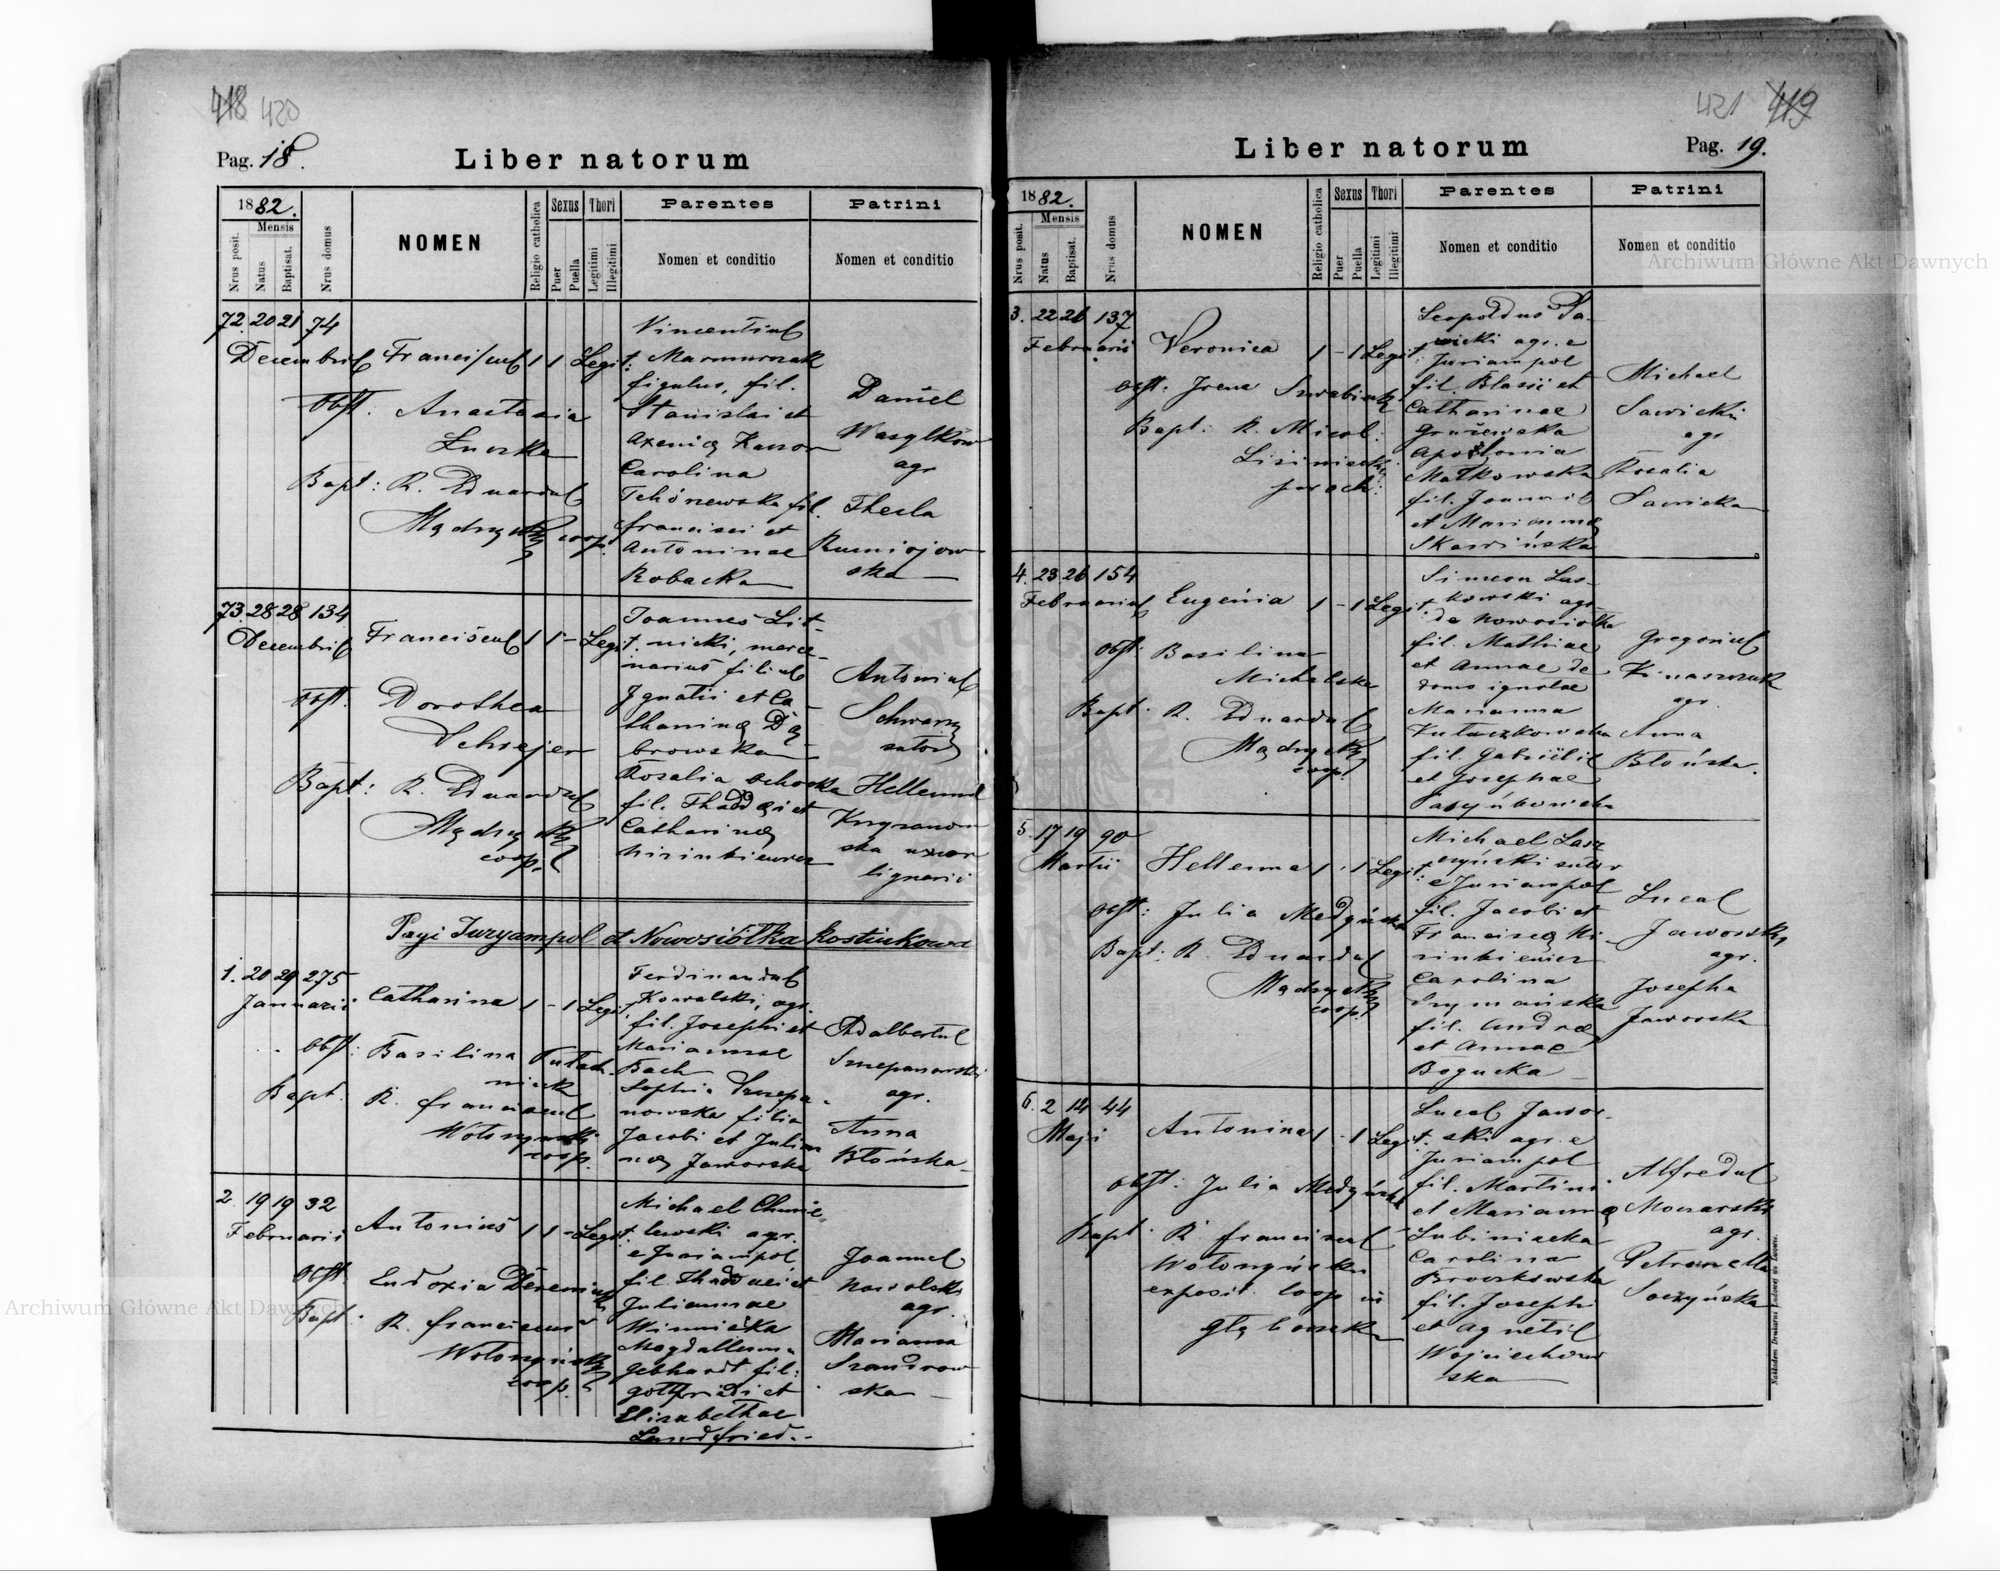 418 420
Pag. 18.
Liber natorum
1882.
Mensis
Nrus posit.
Natus
Baptisat.
Nrus domus
NOMEN
Religio catholica
Sexus
Puer
Puella
Thori
Legitimi
Illegitimi
Parentes
Nomen et conditio
Patrini
Nomen et conditio
72. 20 21 74
Decembris Franciscus 1 1 Legit.
Obst: Anastasia
Łucka
Bapt: R. Eduardus
Mądrzycki coop.
Vincentius
figulus, fil.
Stanislai et
Carolina
fil.
Francisci et
Antoninae
Robacka
Daniel
Wasylków
agr.
Thecla
ska
73. 28 28 134
Decembris Franciscus 1 1 - Legit.
Obst. Dorothea
Schrejer
Bapt: R. Eduardus
Mądrzycki
coop.
Joannes Lit-
nicki, merce-
narius filius
Ignatii et Ca-
tharinae Dą-
browska
Rosalia Ochocka
fil. Thaddaei et
Catharinae
Antonius
Schwarz
sutor
Hellena
ska uxor
lignarii
Pagi Juryampol et Nowosiółka Kostiukowa
1. 20 29 275
Januarii Catharina 1 - 1 Legit.
Obst: Basilina
Bapt. R. Franciscus
Wołoszyński
coop.
Ferdinandus
Kowalski, agr.
fil. Josephi et
Mariannae
Bach
Sophia Szczepa-
nowska filia
Jacobi et Julian-
nae Jaworska
Adalbertus
Szczepanowski
agr.
Anna
Błońska
2. 19 19 32
Februarii Antonius 1 1 - Legit.
Obst. Eudoxia
Bapt. R. Franciscus
Wołoszyński
coop.
Michael Chmie-
lewski agr.
e Juriampol
fil. Thaddaei et
Juliannae
Winnicka
Magdallenna
Gebhardt fil:
Gottfridi et
Elisabethae
Landfried.
Joannes
Nawolski
agr.
Marianna
Szandrow
ska
421 419
Liber natorum
Pag. 19.
1882.
Mensis
Nrus posit.
Natus
Baptisat.
Nrus domus
NOMEN
Religio catholica
Sexus
Puer
Puella
Thori
Legitimi
Illegitimi
Parentes
Nomen et conditio
Patrini
Nomen et conditio
3. 22 26 137
Februarii Veronica 1 - 1 Legit.
Obst. Irena
Bapt: R. Nicol:
Lisiniecki
paroch:
Leopoldus Sa-
wicki agr. e
Juriampol
fil. Blasii et
Catharinae
Apollonia
Małkowska
fil. Joannis
et Mariannae
Skawińska
Michael
Sawicki
agr
Rosalia
Sawicka
4. 23 26 154
Februarius Eugenia 1 - 1 Legit.
Obst. Basilina
Michalska
Bapt. R. Eduardus
Mądrzycki
coop.
Simeon Las-
kowski agr.
de Nowosiółka
fil. Mathiae
et Annae de
domo ignotae
Marianna
fil. Gabrielis
et Josephae
Gregorius
agr.
Anna
Błońska.
5. 17 19 90
Martii Hellenna 1 - 1 Legit.
Obst: Julia Medyńska
Bapt: R. Eduardus
Mądrzycki
coop.
Michael Lasz-
czyński sutor
e Juriampol
fil. Jacobi et
Franciscae
Carolina
Szymańska
fil. Andreae
et Annae
Bogucka
Lucas
Jaworski
agr.
Josepha
Jaworska
6. 2 14 44
Maji Antonina 1 - 1 Legit.
Obst: Julia Medyńska
Bapt. R Franciscus
Wołoszyński
exposit. coop in
Głęboczek
Lucas Jawor-
ski agr. e
Juriampol
fil. Martini
et Mariannae
Lubiniecka
Carolina
fil. Josephi
et Agnetis
Wojciechow
ska
Alfredus
Monarski
agr.
Petronella
Soczyńska
Nakładem Drukarni Ludowej we Lwowie.
Archiwum Główne Akt Dawnych
Archiwum Główne Akt Dawnych